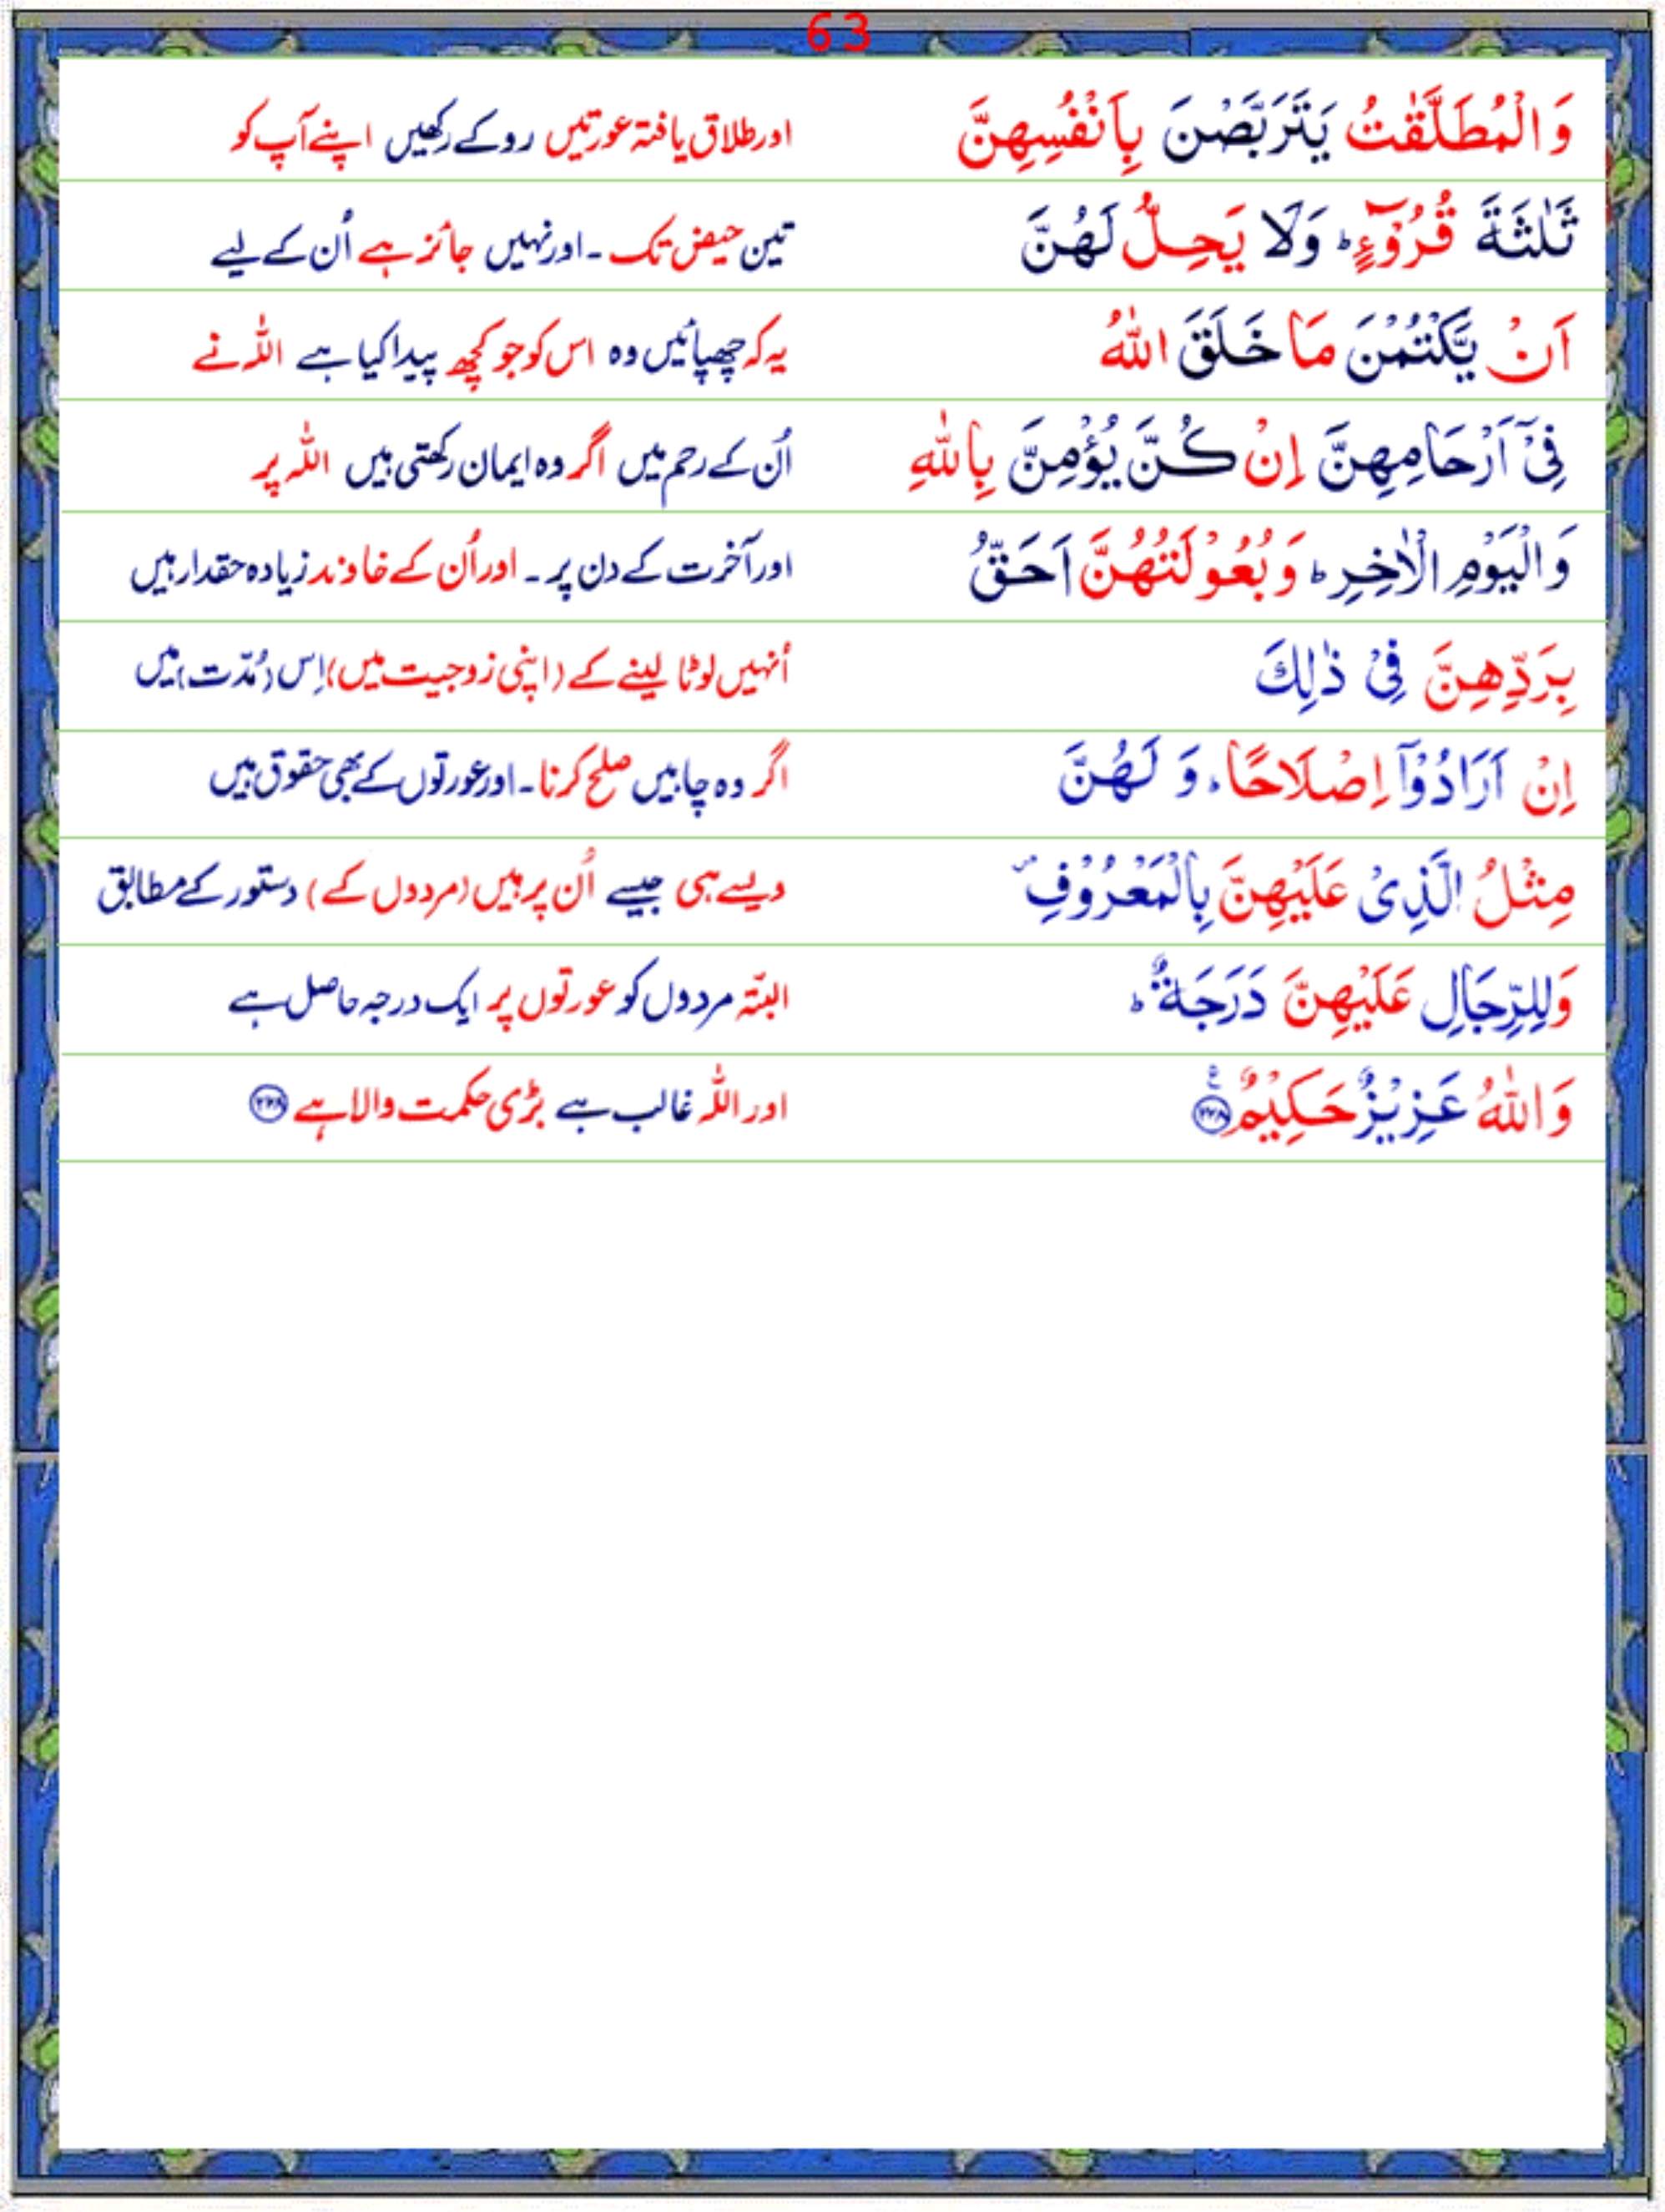 63
وَالْمُطَلَّقٰتُ يَتَرَبَّصْنَ بِاَنْفُسِهِنَّ اور طلاق یافتہ عورتیں روکے رکھیں اپنے آپ کو
ثَلٰثَةَ قُرُوْٓءٍ ؕ وَلَا يَحِلُّ لَهُنَّ تین حیض تک ۔ اور نہیں جائز ہے اُن کے لیے
اَنْ يَّكْتُمْنَ مَا خَلَقَ اللّٰهُ یہ کہ چھپائیں وہ اس کو جو کچھ پیدا کیا ہے اللہ نے
فِىْٓ اَرْحَامِهِنَّ اِنْ كُنَّ يُؤْمِنَّ بِاللّٰهِ اُن کے رحم میں اگر وہ ایمان رکھتی ہیں اللہ پر
وَالْيَوْمِ الْاٰخِرِ ؕ وَبُعُوْلَتُهُنَّ اَحَقُّ اور آخرت کے دن پر ۔ اور اُن کے خاوند زیادہ حقدار ہیں
بِرَدِّهِنَّ فِىْ ذٰلِكَ اُنہیں لوٹا لینے کے (اپنی زوجیت میں) اِس (مُدّت) میں
اِنْ اَرَادُوْٓا اِصْلَاحًا ؕ وَ لَهُنَّ اگر وہ چاہیں صلح کرنا ۔ اور عورتوں کے بھی حقوق ہیں
مِثْلُ الَّذِىْ عَلَيْهِنَّ بِالْمَعْرُوْفِ ۪ ویسے ہی جیسے اُن پر ہیں (مردوں کے) دستور کے مطابق
وَلِلرِّجَالِ عَلَيْهِنَّ دَرَجَةٌ ؕ البتّہ مردوں کو عورتوں پر ایک درجہ حاصل ہے
وَاللّٰهُ عَزِيْزٌ حَكِيْمٌ ۧ ﴿۲۲۸﴾ اور اللہ غالب ہے بڑی حکمت والا ہے ﴿۲۲۸﴾